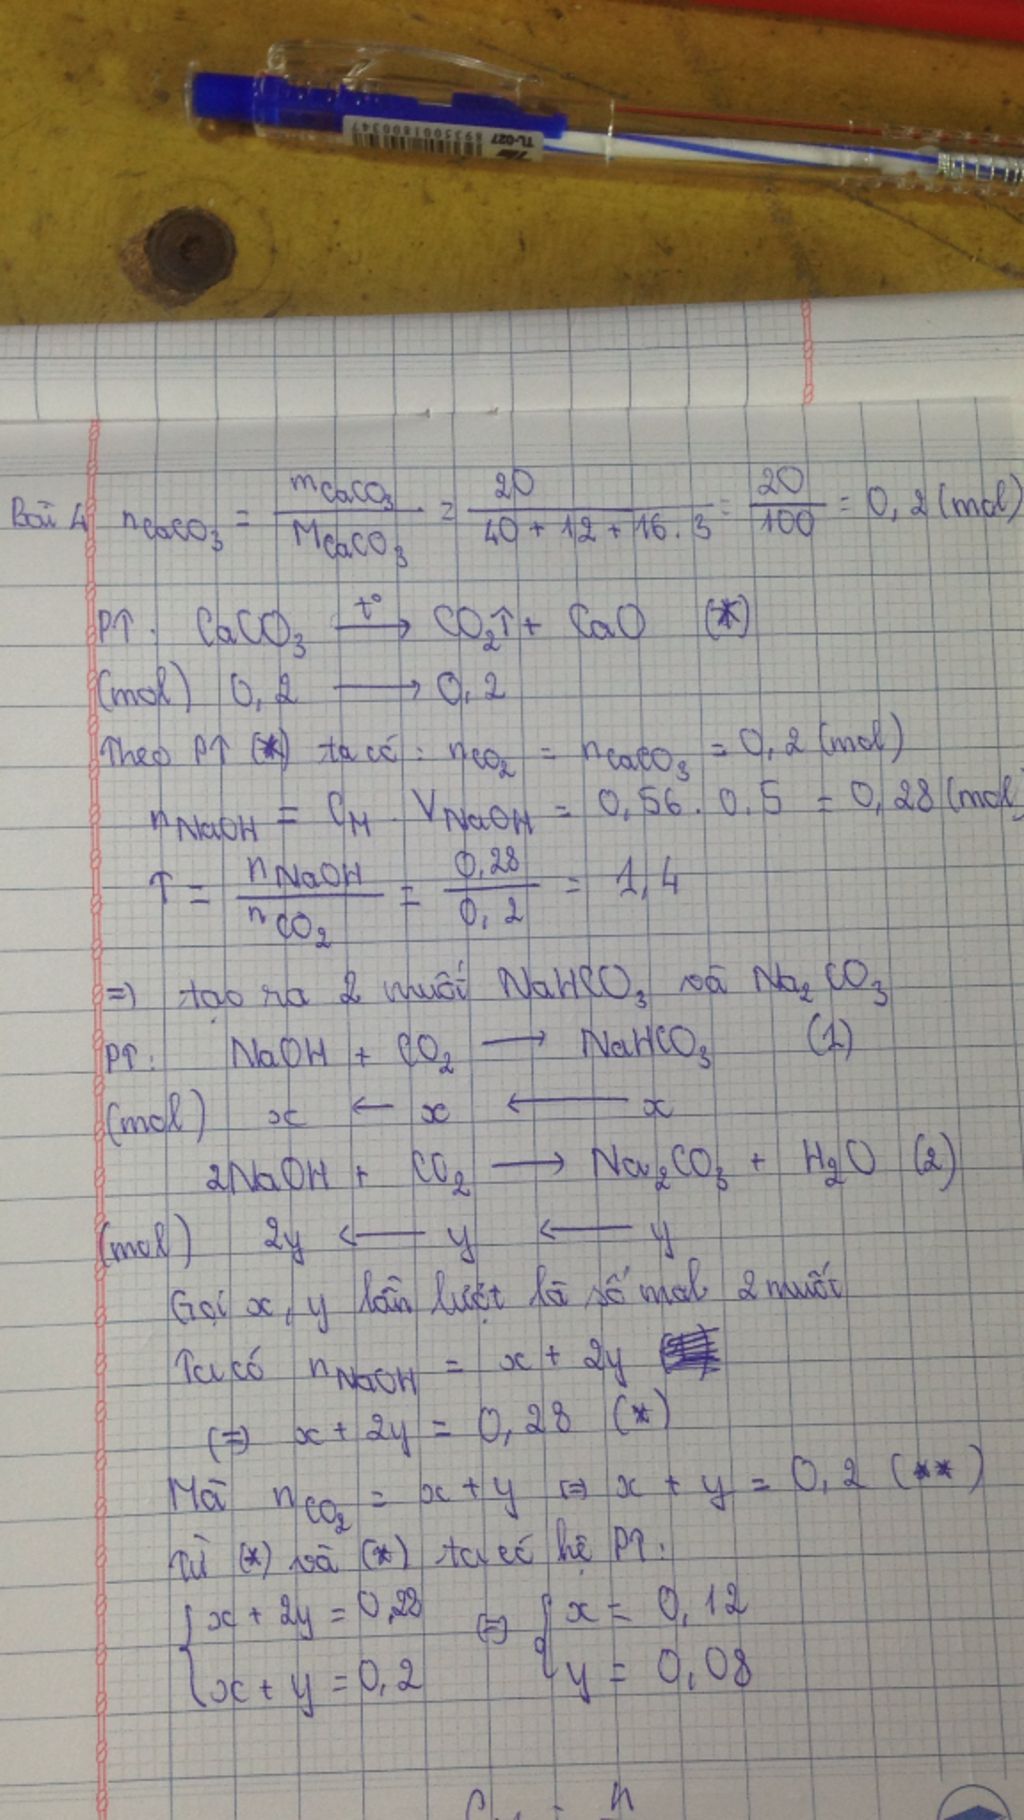 TL-027
8935001800347
Bài 4 nCaCO₃ = mCaCO₃ / MCaCO₃ = 20 / (40 + 12 + 16.3) = 20/100 = 0,2 (mol)
PT: CaCO₃ —t°→ CO₂↑ + CaO (*)
(mol) 0,2 → 0,2
Theo PT (*) ta có: nCO₂ = nCaCO₃ = 0,2 (mol)
nNaOH = CM . VNaOH = 0,56. 0.5 = 0,28 (mol)
T = nNaOH / nCO₂ = 0,28 / 0,2 = 1,4
=> tạo ra 2 muối NaHCO₃ và Na₂CO₃
PT: NaOH + CO₂ → NaHCO₃ (1)
(mol) x ← x ← x
2NaOH + CO₂ → Na₂CO₃ + H₂O (2)
(mol) 2y ← y ← y
Gọi x, y lần lượt là số mol 2 muối
Ta có nNaOH = x + 2y
(=) x + 2y = 0,28 (*)
Mà nCO₂ = x + y (=) x + y = 0,2 (**)
Từ (*) và (*) ta có hệ PT:
{ x + 2y = 0,28 (=) { x = 0,12
{ x + y = 0,2 { y = 0,08